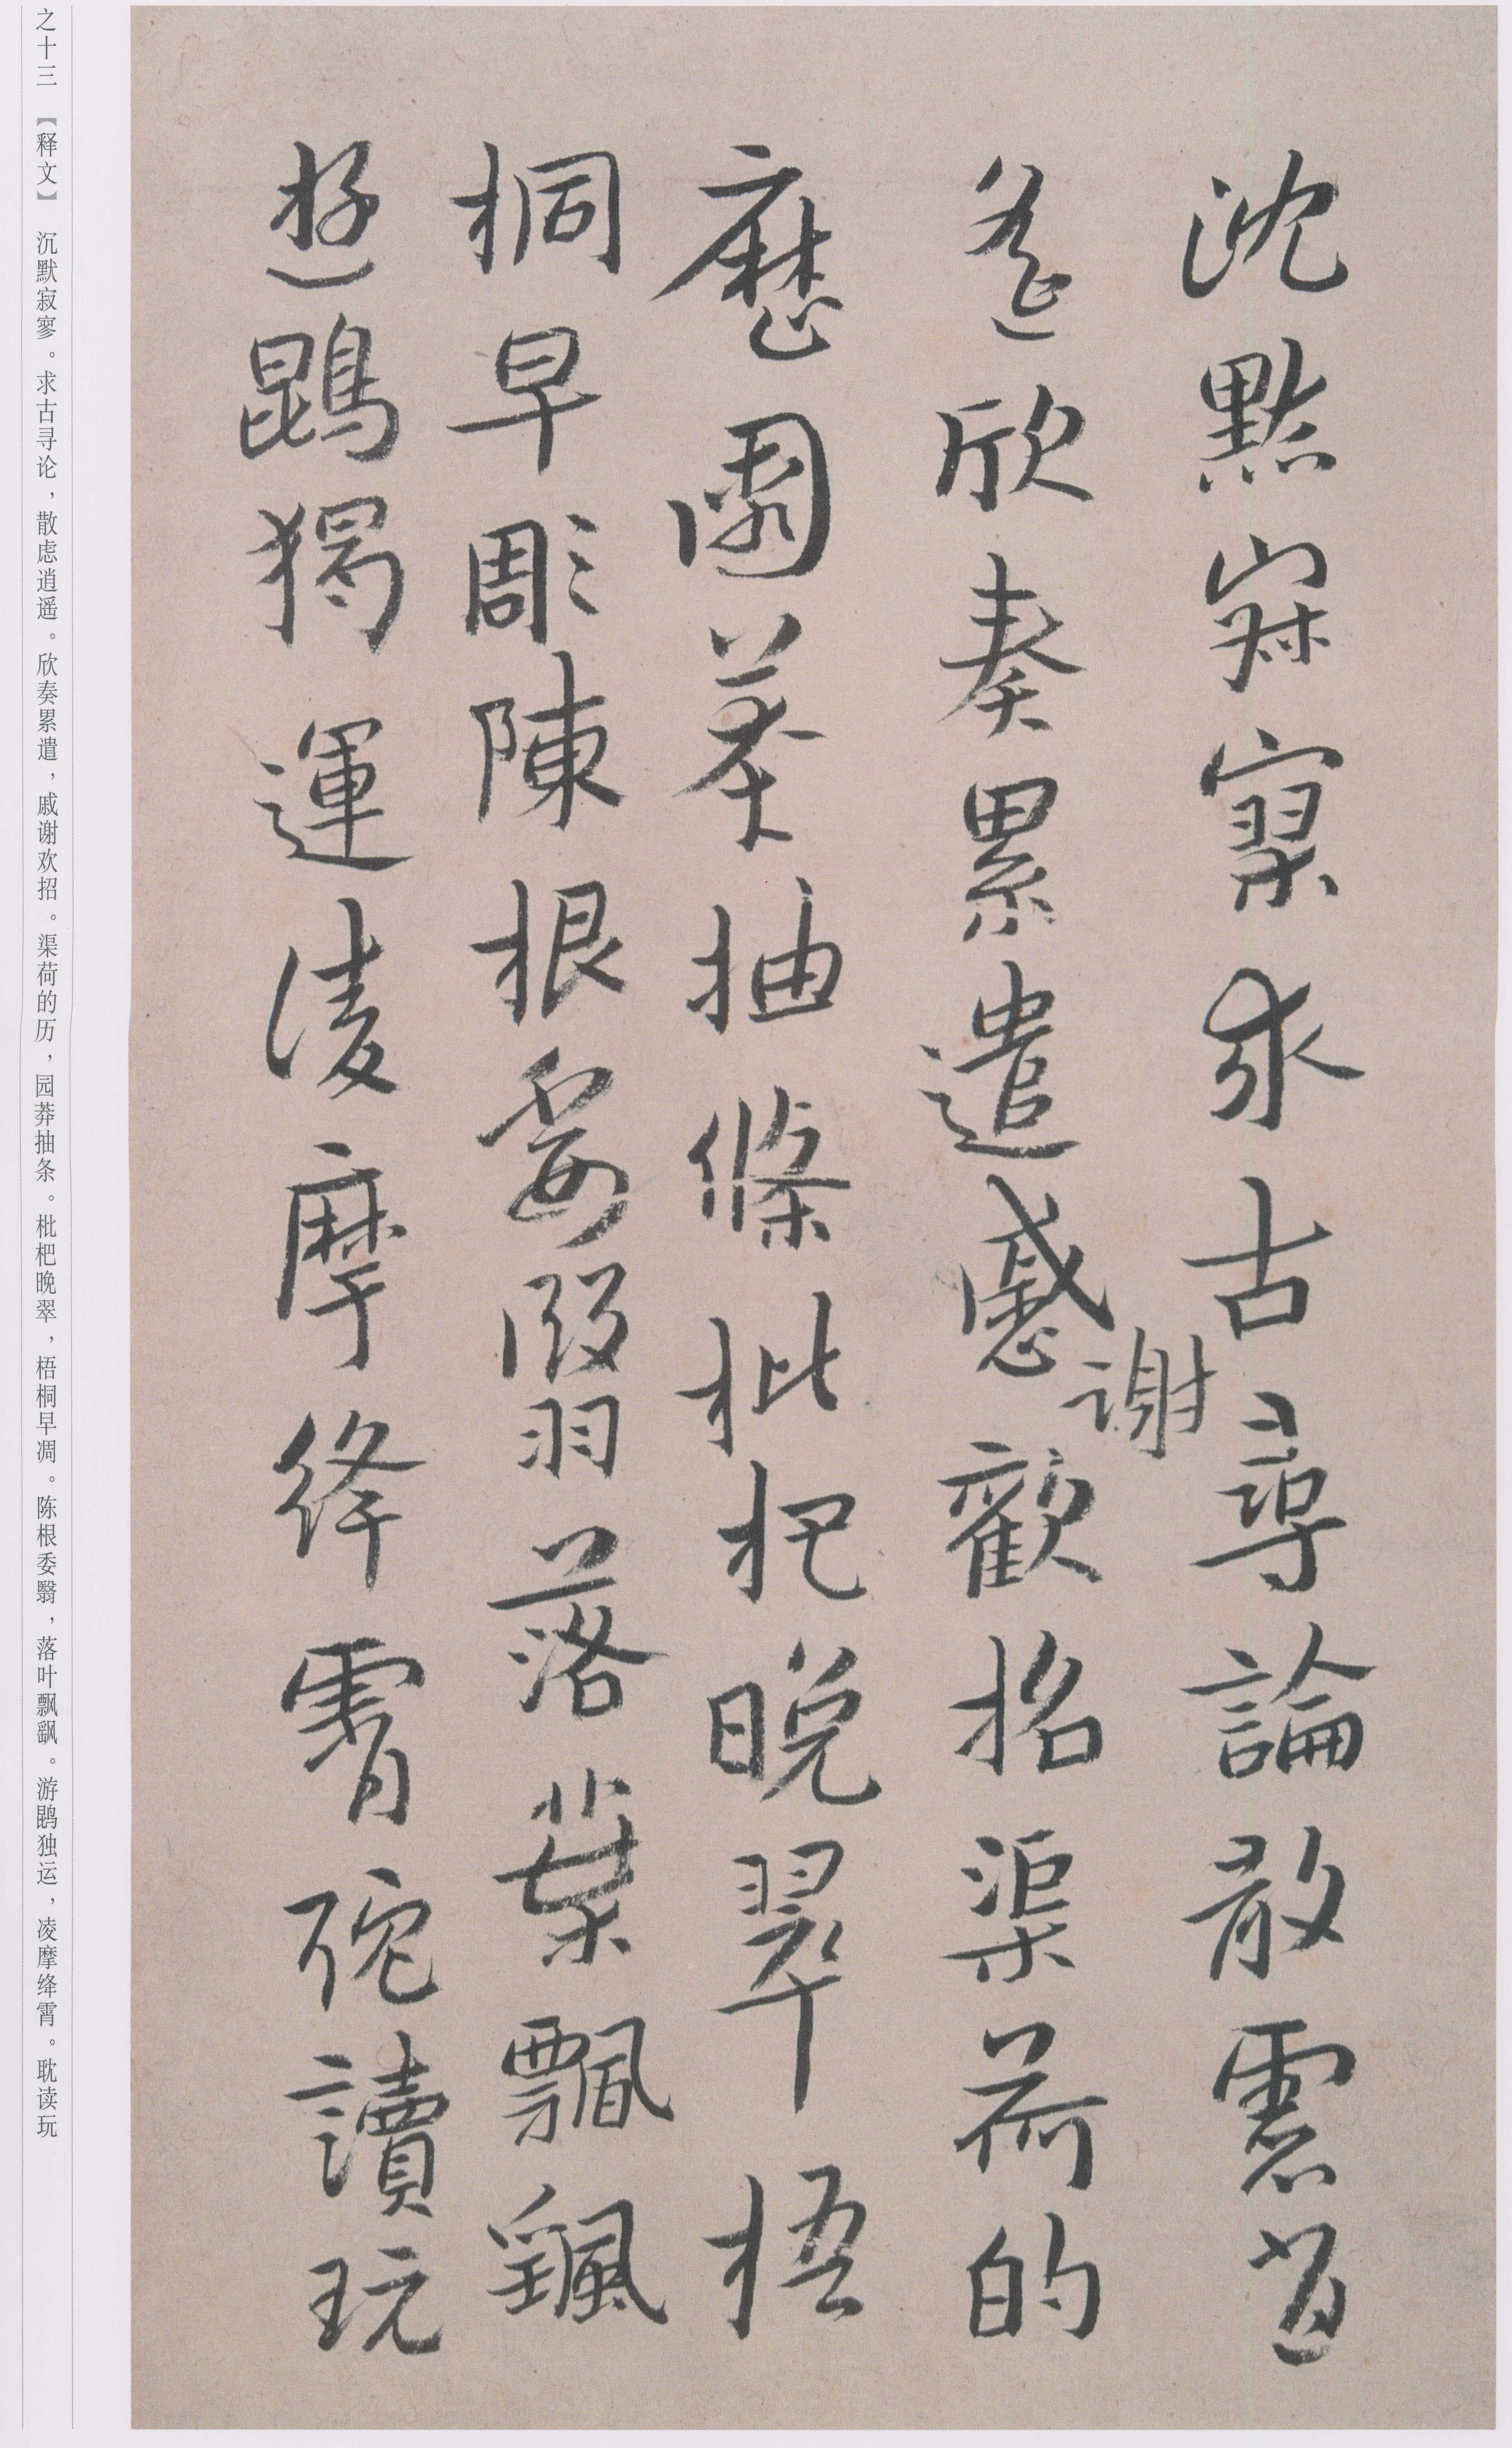 沈默寂寥求古尋論散慮逍
遙欣奏累遣慼謝歡招渠荷的
歷園莽抽條枇杷晚翠梧
桐早彫陳根委翳落葉飄颻
遊鵾獨運凌摩絳霄耽讀玩
之十三 【释文】 沉默寂寥。求古寻论，散虑逍遥。欣奏累遣，戚谢欢招。渠荷的历，园莽抽条。枇杷晚翠，梧桐早凋。陈根委翳，落叶飘飖。游鹍独运，凌摩绛霄。耽读玩